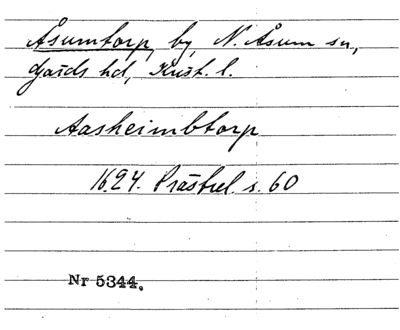 Åsumtorp, by, N. Åsum sn,
Gärds hd, Krist. l.
Aasheimbtorp
1624. Prästrel. s. 60
Nr 5344.